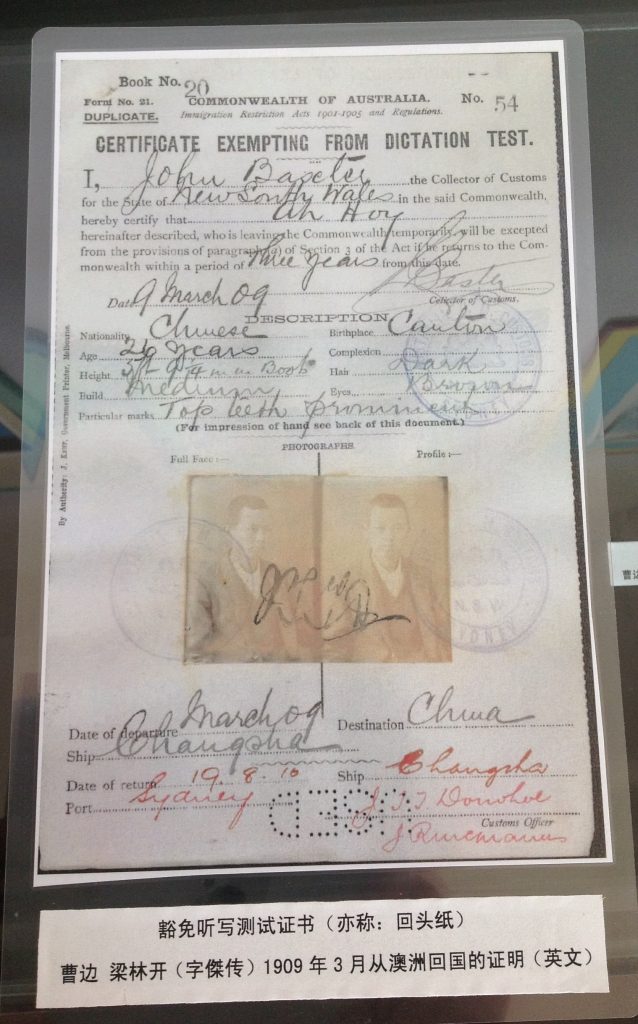 Book No. 20
Form No. 21. COMMONWEALTH OF AUSTRALIA. No. 54
DUPLICATE. Immigration Restriction Acts 1901-1905 and Regulations.
CERTIFICATE EXEMPTING FROM DICTATION TEST.
I, John Baxter the Collector of Customs
for the State of New South Wales in the said Commonwealth,
hereby certify that Ah Hoy
hereinafter described, who is leaving the Commonwealth temporarily, will be excepted
from the provisions of paragraph (a) of Section 3 of the Act if he returns to the Com-
monwealth within a period of Three years from this date.
J Baxter
Date 9 March 09 Collector of Customs.
DESCRIPTION
Nationality Chinese Birthplace Canton
Age 26 years Complexion
Height 5ft in Boots Hair Dark
Build Medium Eyes Brown
Particular marks Top teeth prominent
(For impression of hand see back of this document.)
PHOTOGRAPHS.
Full Face :— Profile :—
By Authority: J. Kemp, Government Printer, Melbourne.
N.S.W.
SYDNEY
Date of departure March 09 Destination China
Ship Changsha
Date of return 19.8.10 Ship Changsha
Port Sydney J.T.T Donohoe
Customs Officer
豁免听写测试证书（亦称：回头纸）
曹边 梁林开（字傑传）1909年3月从澳洲回国的证明（英文）
曹边